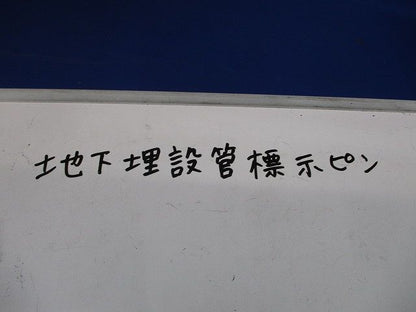 地下埋設管標示ピン